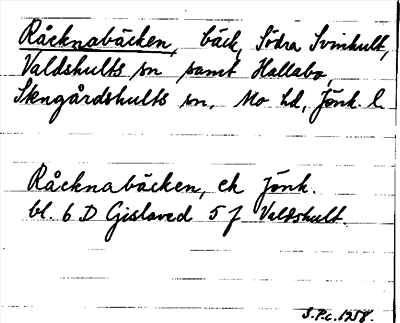 Råcknabäcken, bäck, Södra Svinhult,
Valdshults sn samt Hallabo,
Stengårdshults sn, Mo hd, Jönk. l.
Råcknabäcken, ek Jönk.
bl. 6 D Gislaved 5 f Valdshult.
S.P.c. 1958.